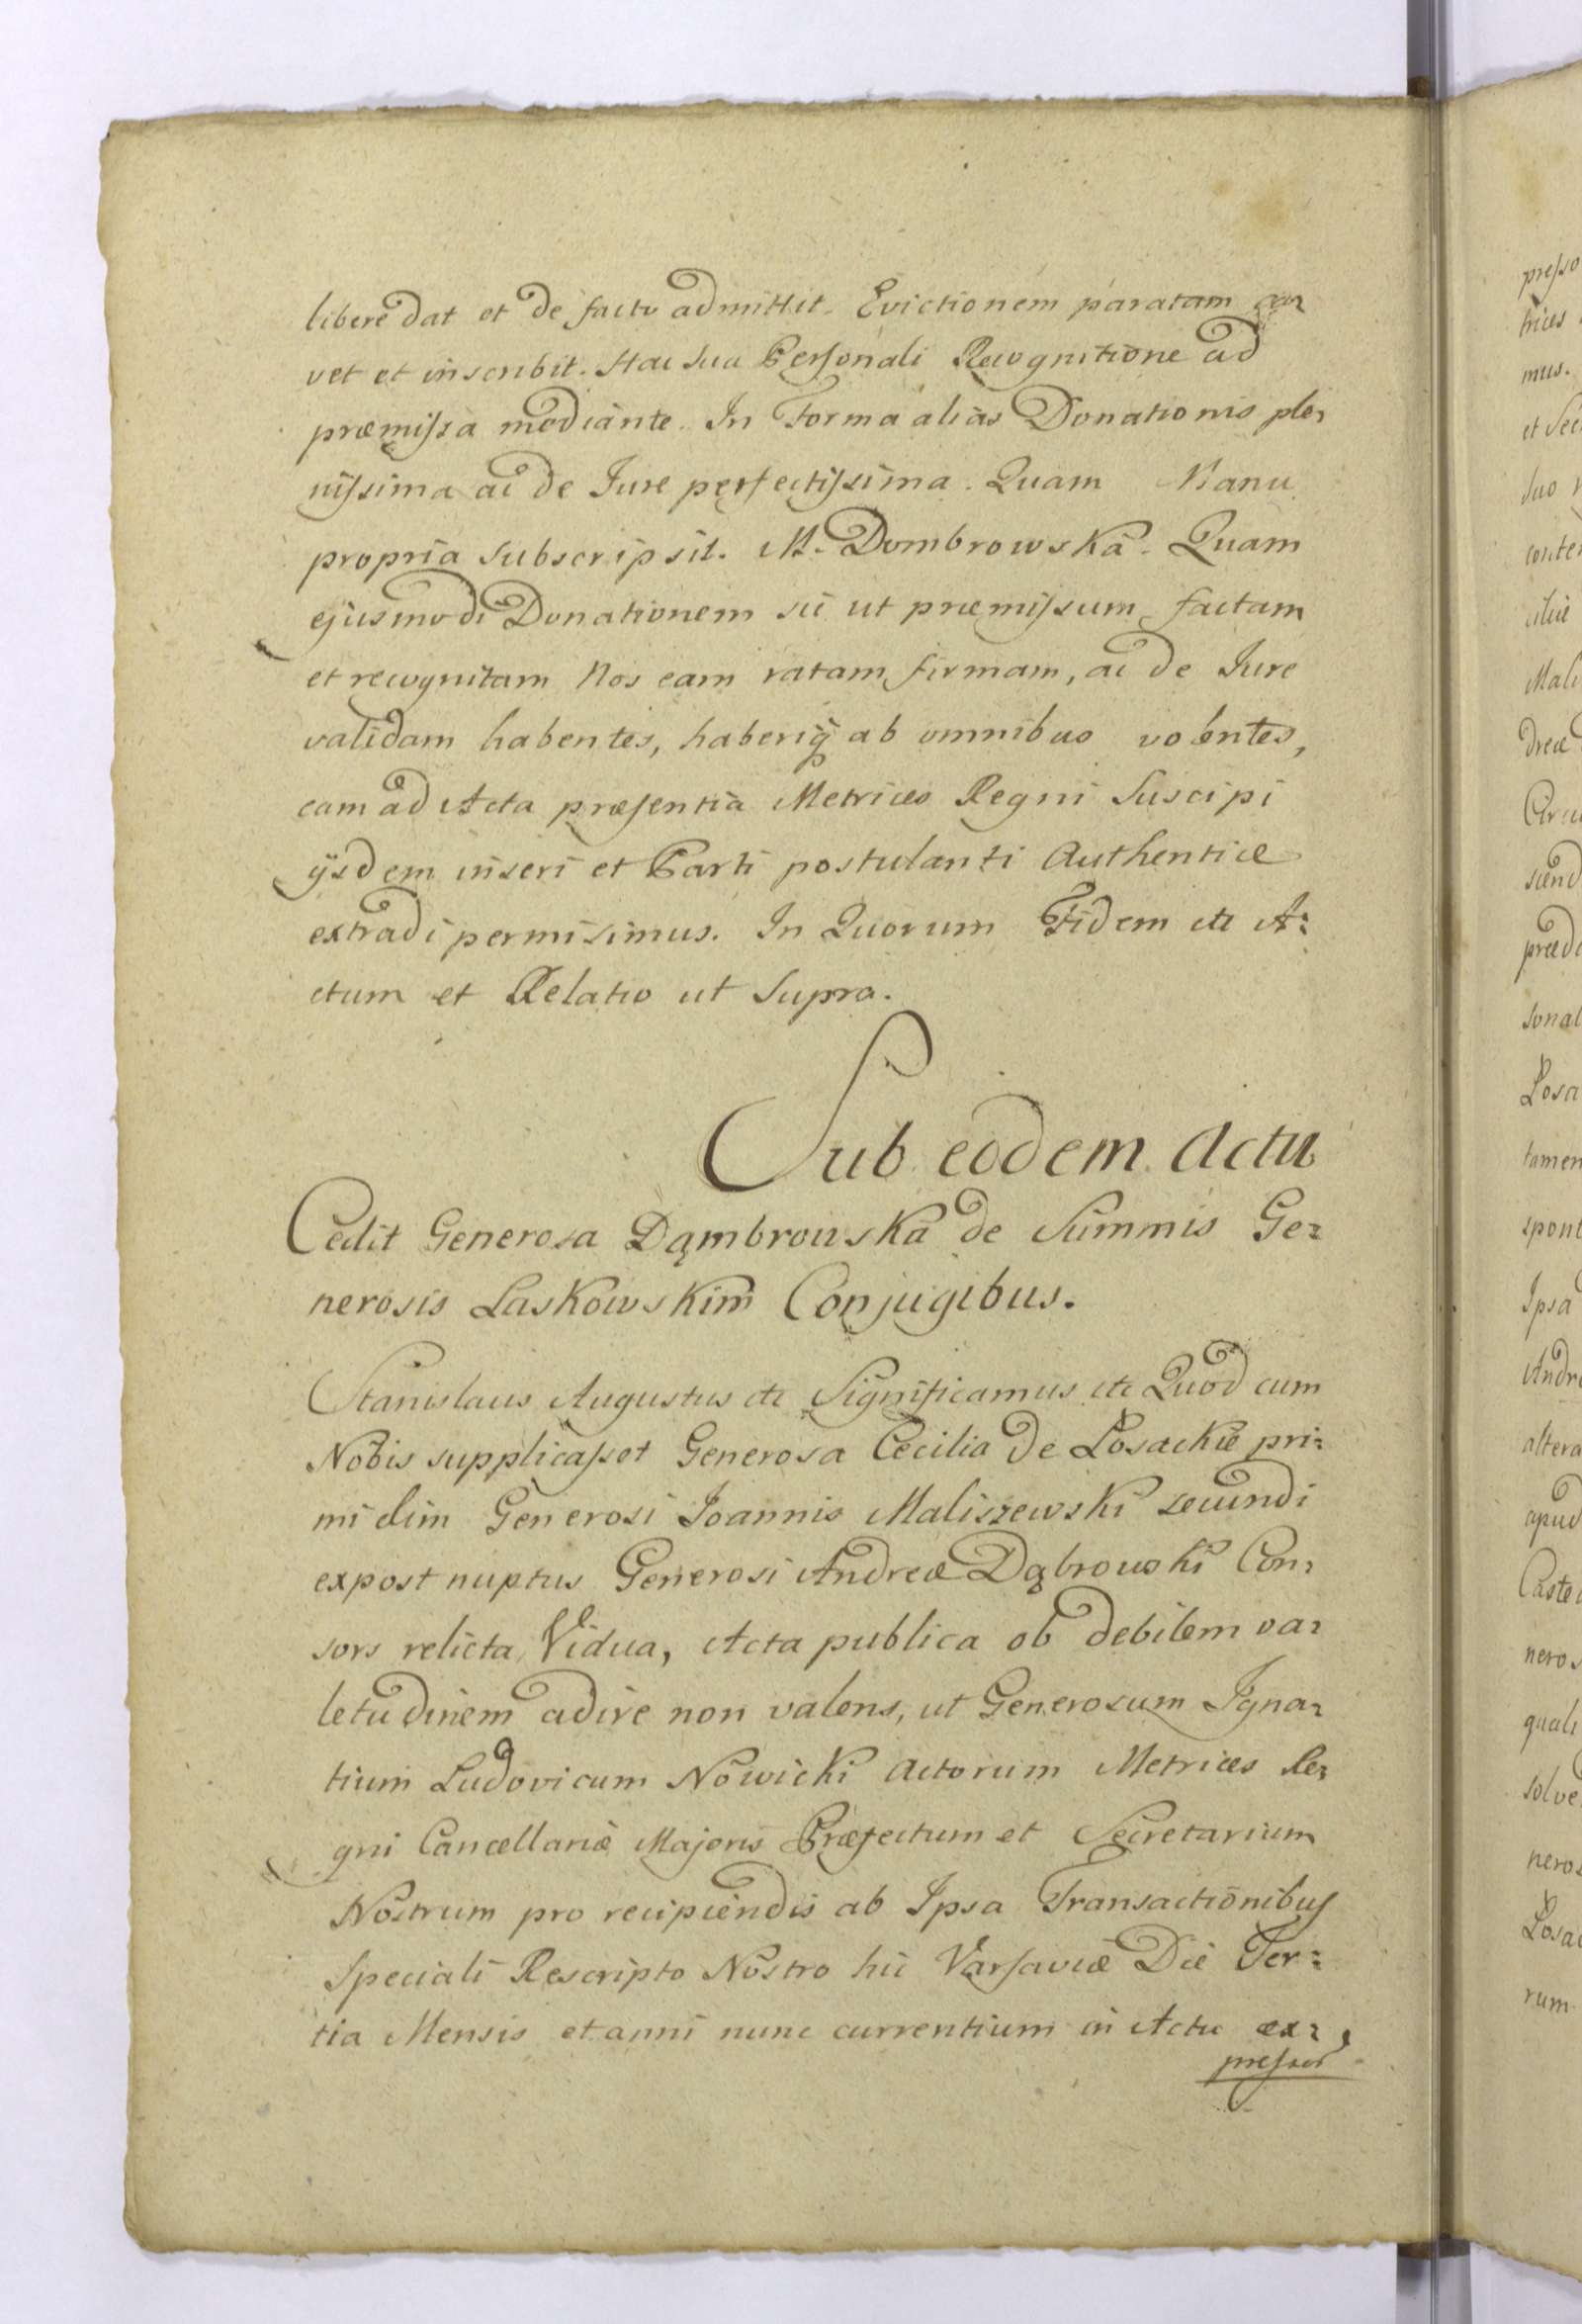 libere dat et de facto admittit. Evictionem paratam ca=
vet et inscribit. Hac sua Personali Recognitione ad
præmissa mediante. In Forma alias Donationis ple=
nissima ac de Jure perfectissima. Quam Manu
propria subscripsit. M. Dombrowska. Quam
ejusmodi Donationem sic ut præmissum factam
et recognitam Nos eam ratam, firmam, ac de Jure
validam habentes, haberiq̃ ab omnibus volentes,
eam ad Acta præsentia Metrices Regni Suscipi
ijsdem inseri et Parti postulanti Authentice
extradi permisimus. In Quorum Fidem etc A=
ctum et Relatio ut Supra.
Sub eodem Actu
Cedit Generosa Dąmbrowska de Summis Ge=
nerosis Laskowskim Conjugibus.
Stanislaus Augustus etc Significamus etc Quod cum
Nobis supplicasset Generosa Cecilia de Łosackie pri=
mi olim Generosi Joannis Maliszewski secundi
expost nuptus Generosi Andreæ Dąbrowski Con=
sors relicta Vidua, Acta publica ob debilem va=
letudinem adire non valens, ut Generosum Igna=
tium Ludovicum Nowicki Actorum Metrices Re=
gni Cancellariæ Majoris Præfectum et Secretarium
Nostrum pro recipiendis ab Ipsa Transactionibus
Speciali Rescripto Nostro hic Varsaviæ Die Ter=
tia Mensis et anni nunc currentium in Actu ex=
presso
presso
trices
mus.
et Sec
suo
conte
Mali
dreæ
præd
sonal
Łosa
tamen
spont
Ipsa
Andre
altera
apud
Caste
neros
quali
solve
neros
Łosac
rum